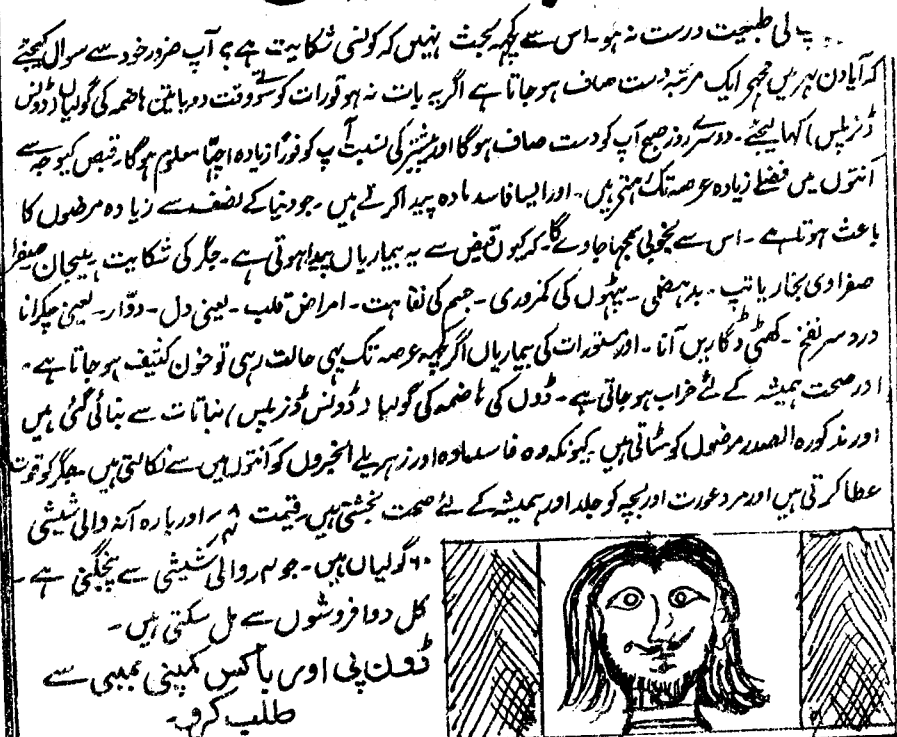 پ لی طبیعت درست نہ ہو۔ اس سے کچھ بحث نہیں کہ کونسی شکایت ہے؟ آپ ضرور خود سے سوال کیجئے
کہ آیا دن بھر میں مجھے ایک مرتبہ دست صاف ہو جاتا ہے اگر یہ بات نہ ہو تو رات کو سوتے وقت دو یا تین ہاضمہ کی گولیاں (ڈونس
ڈنر پلس) کھا لیجئے۔ دوسرے روز صبح آپ کو دست صاف ہوگا اور پیشتر کی نسبت آپ کو فوراً زیادہ اچھا معلوم ہوگا۔ قبض کیوجہ سے
آنتوں میں فضلے زیادہ عرصہ تک رہتے ہیں۔ اور ایسا فاسد مادہ پیدا کرتے ہیں۔ جو دنیا کے نصف سے زیادہ مرضوں کا
باعث ہوتا ہے۔ اس سے بخوبی سمجھا جاوے گا۔ کہ کیوں قبض سے یہ بیماریاں پیدا ہوتی ہے۔ جگر کی شکایت ہیجان صفرا
صفراوی بخار یا تپ۔ بدہضمی۔ پیٹھوں کی کمزوری۔ جسم کی نقاہت۔ امراض قلب۔ یعنی دل۔ دوّار۔ یعنی چکرانا
درد سر نفخ۔ کھٹی ڈکاریں آنا۔ اور مستورات کی بیماریاں اگر کچھ عرصہ تک یہی حالت رہی تو خون کثیف ہو جاتا ہے۔
اور صحت ہمیشہ کے لئے خراب ہو جاتی ہے۔ ڈون کی ہاضمہ کی گولیاں (ڈونس ڈنر پلس) نباتات سے بنائی گئی ہیں
اور مذکورہ الصدر مرضوں کو ہٹاتی ہیں کیونکہ وہ فاسد مادہ اور زہریلے ابخروں کو آنتوں میں سے نکالتی ہیں۔ جگر کو قوت
عطا کرتی ہیں اور مرد عورت اور بچہ کو جلد اور ہمیشہ کے لئے صحت بخشتی ہیں۔ قیمت ۸؍ اور بارہ آنہ والی شیشی
۶۰ گولیاں ہیں۔ جو ۸؍ والی شیشی سے پنجگنی ہے۔
کل دوا فروشوں سے مل سکتی ہیں۔
ڈون پی اوس باکس کمپنی بمبئی سے
طلب کرو۔